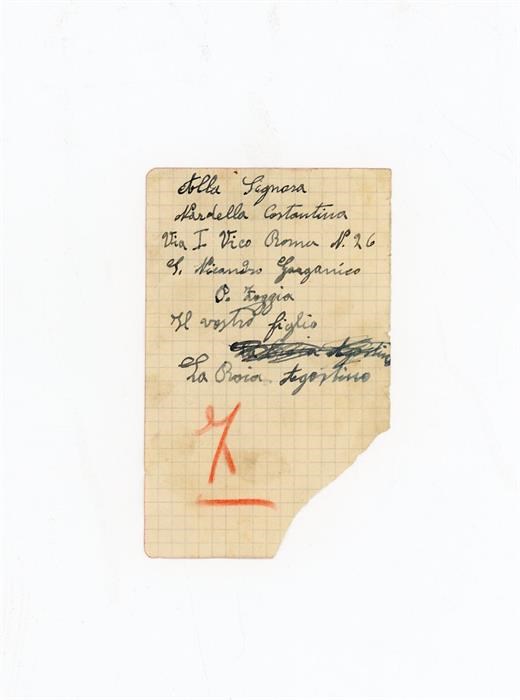 Alla Signora
Nardella Costantina
Via I Vico Roma N. 26
S. Nicandro Garganico
P. Foggia
Il vostro figlio
La Roia Agostino